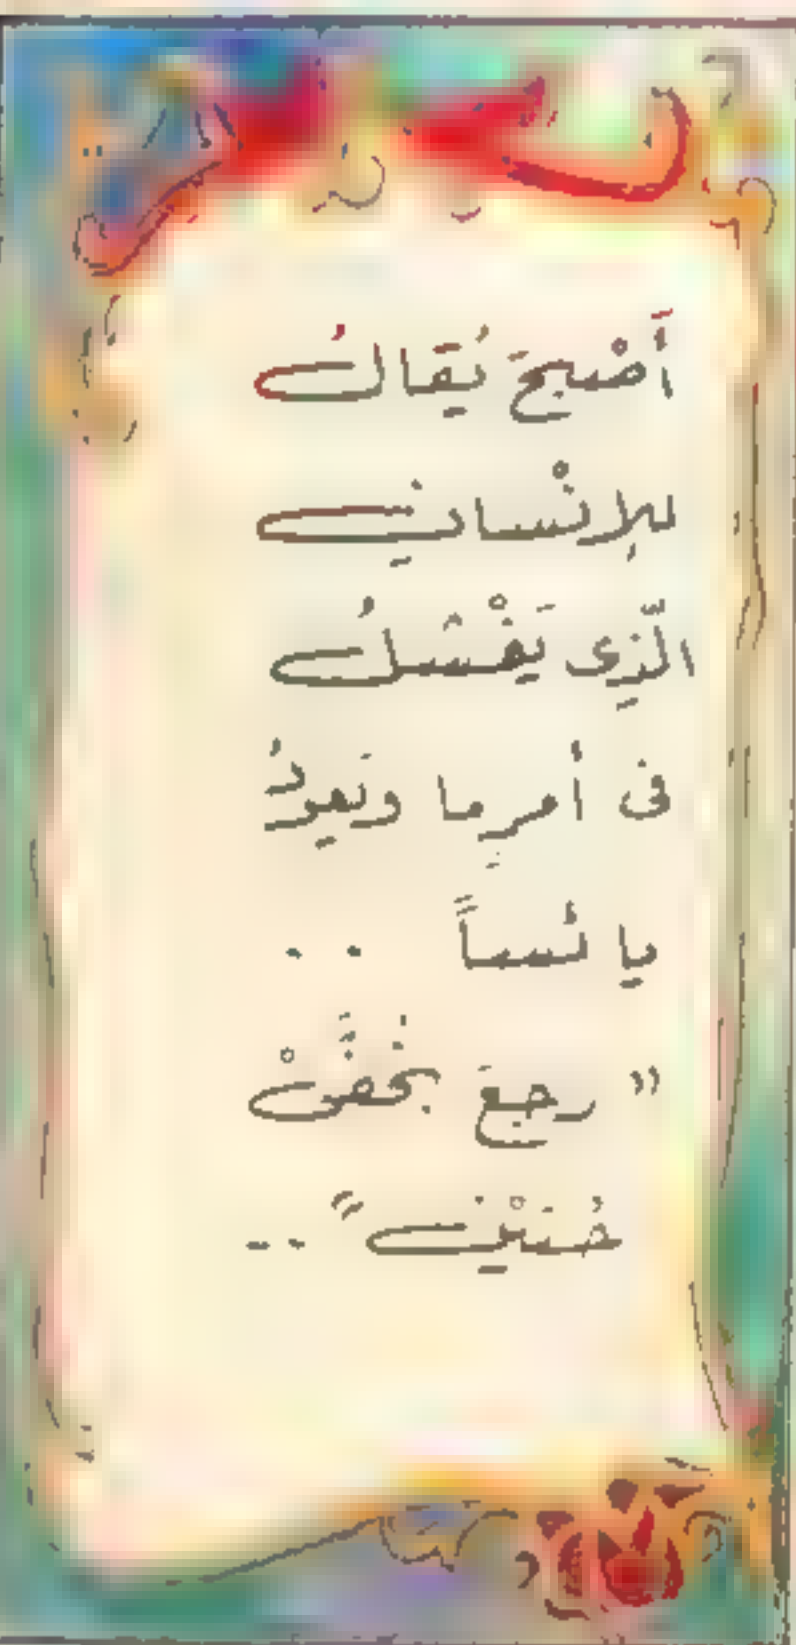 أَصْبحَ يُقالُ
للإنْسانِ
الّذِى يَفْشَلُ
فى أمرِما ويَعودُ
يائساً ..
" رجعَ بخُفَّىْ
حُنَيْنٍ " ..